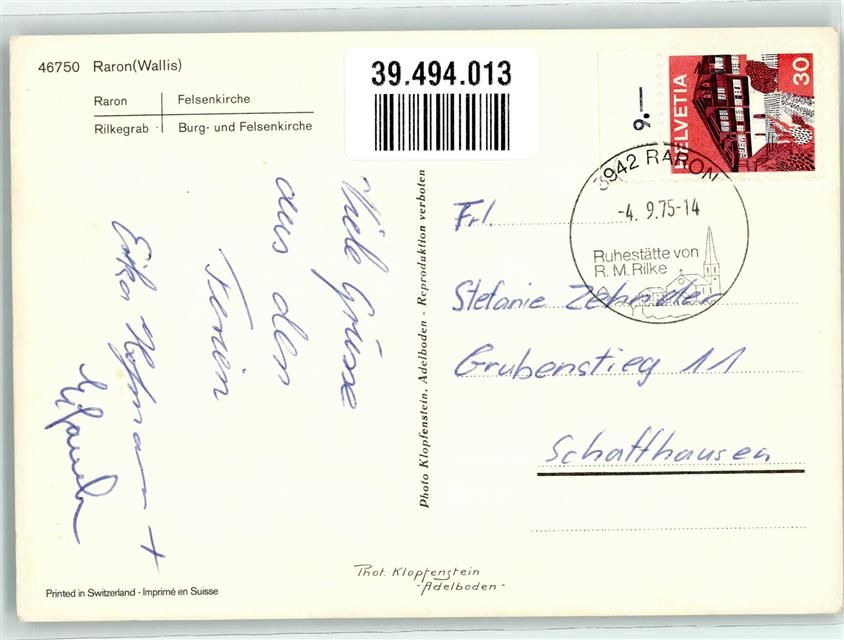 46750 Raron(Wallis)
Raron | Felsenkirche
Rilkegrab · | Burg- und Felsenkirche
39.494.013
9.—
HELVETIA 30
3942 RARON
-4. 9.75-14
Ruhestätte von
R. M. Rilke
Viele Grüsse
aus den
Ferien
Erika Hofmann +
Frl.
Stefanie Zehnder
Grubenstieg 11
Schaffhausen
Photo Klopfenstein, Adelboden - Reproduktion verboten
Phot. Klopfenstein
-Adelboden-
Printed in Switzerland · Imprimé en Suisse